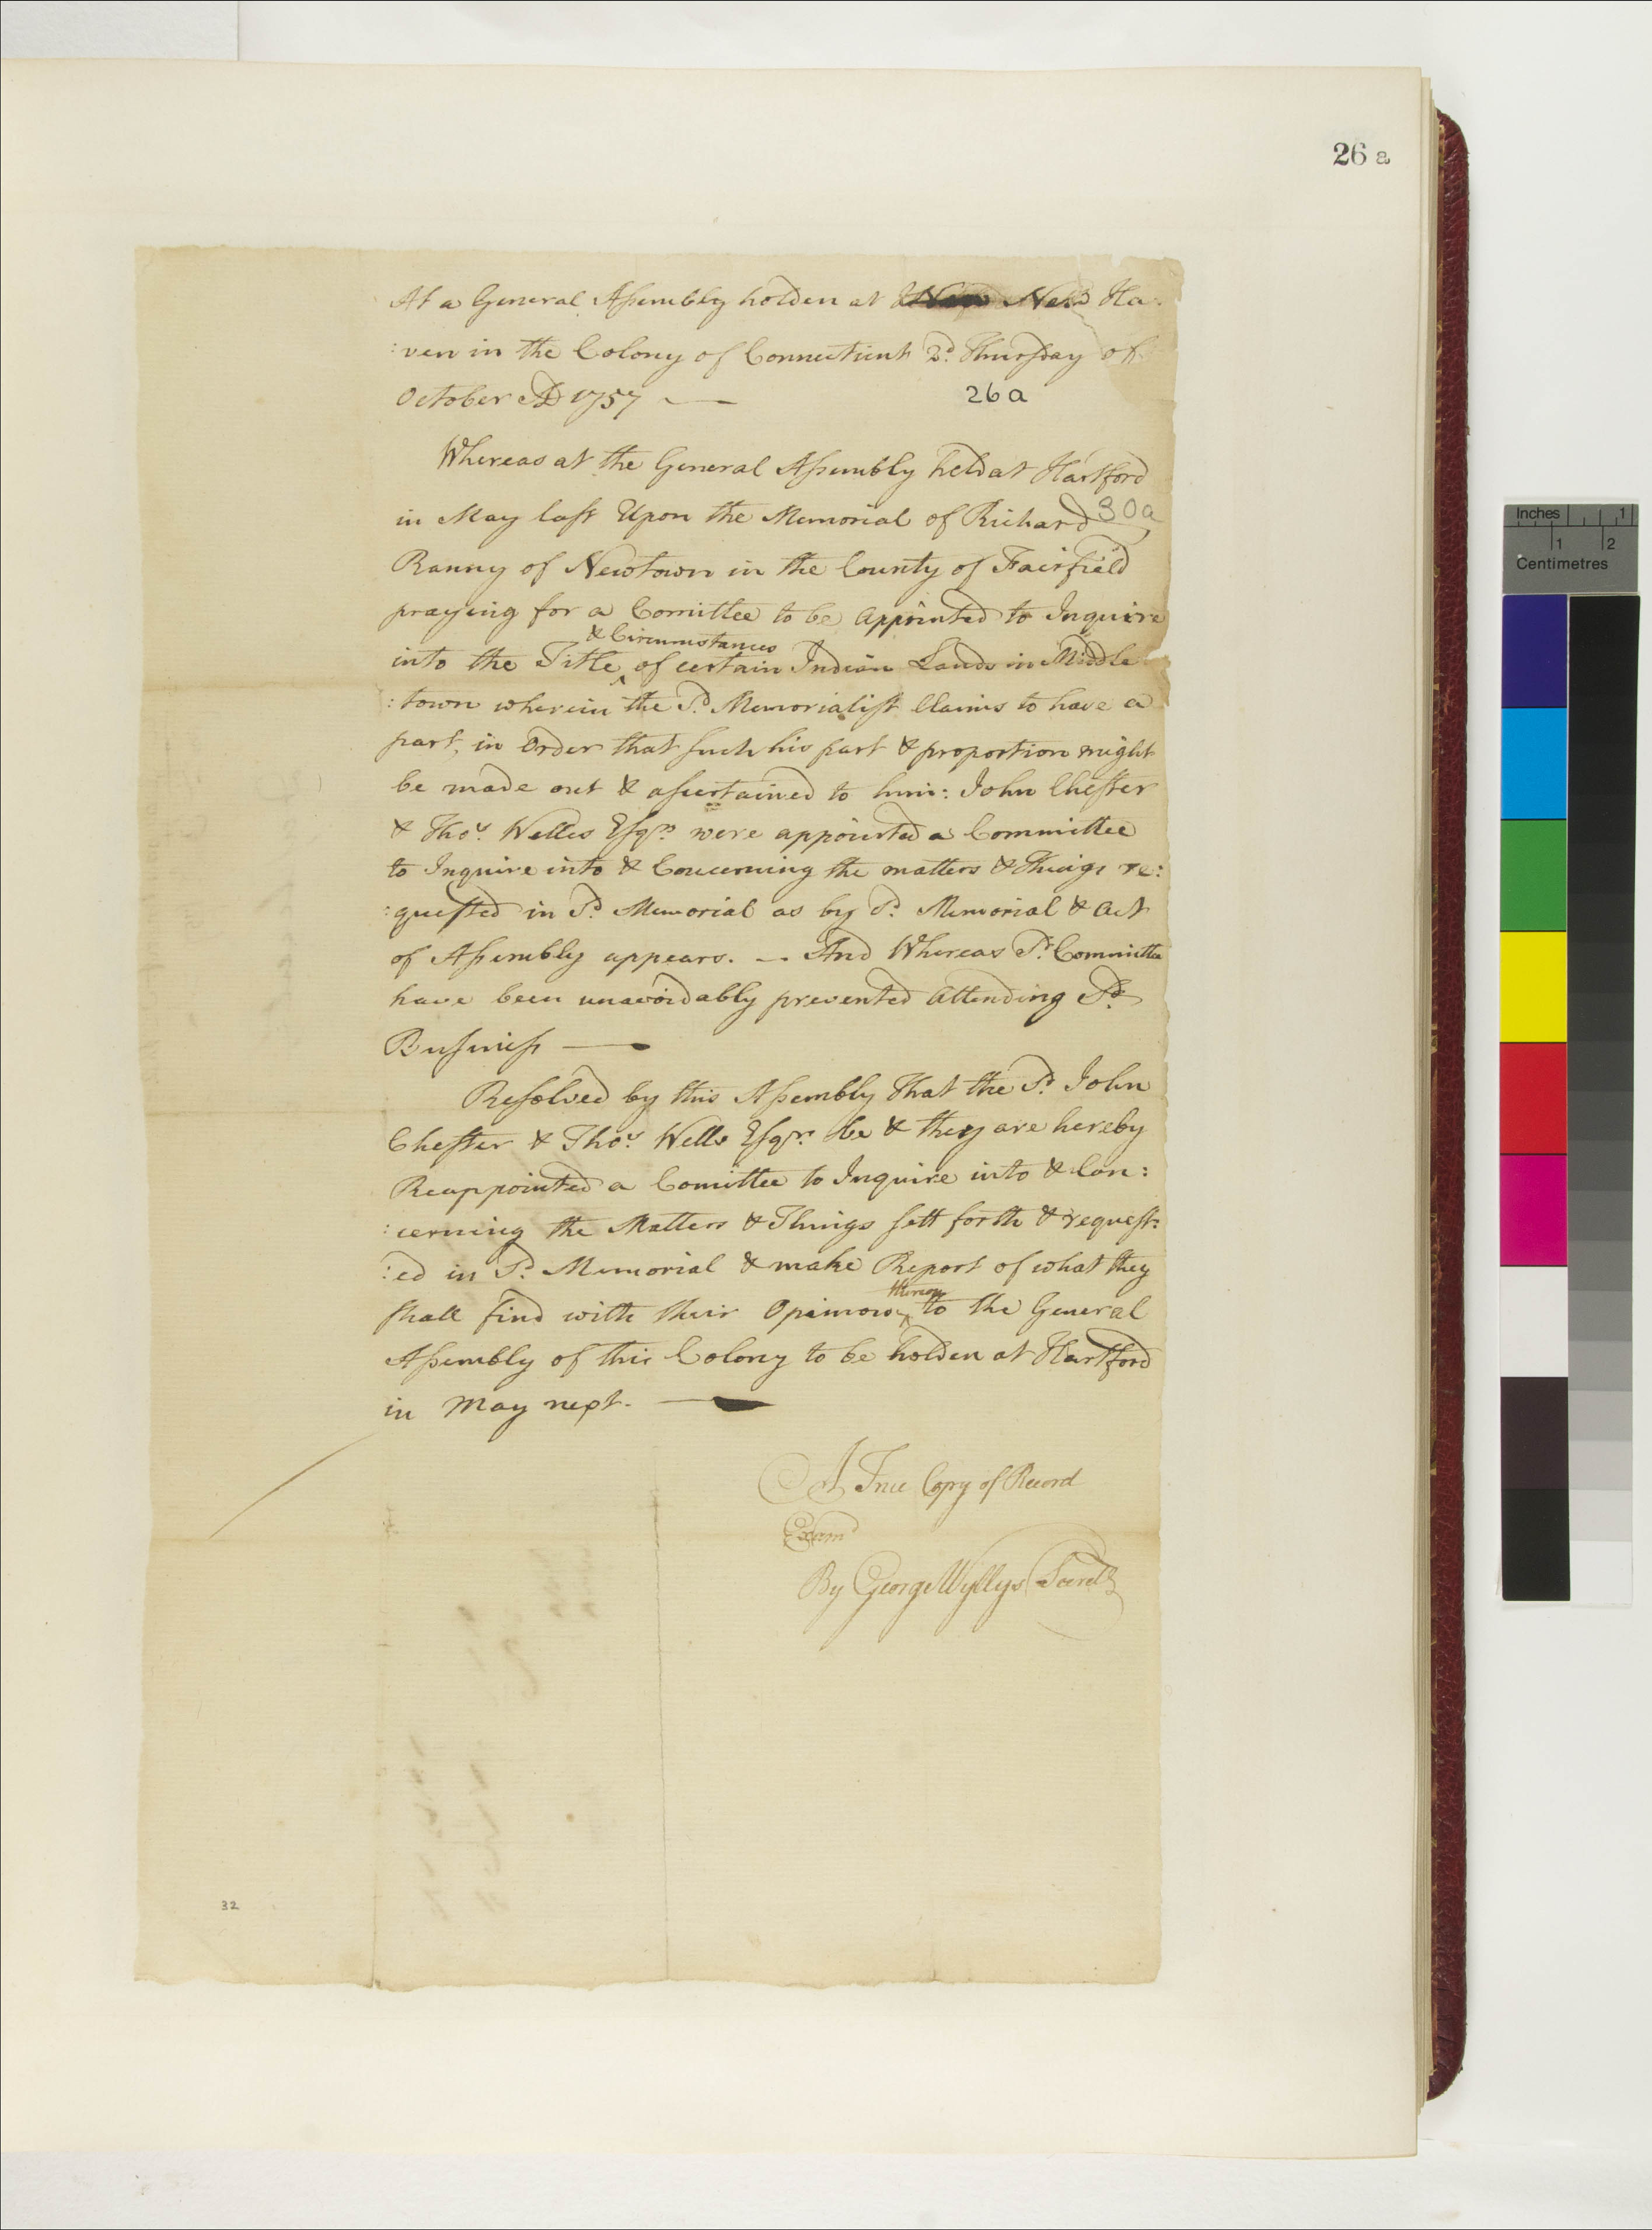 26 a
At a General Assembly holden at New Ha-
:ven in the Colony of Connecticut 2d. Thursday of
October AD 1757
26a
Whereas at the General Assembly held at Hartford
in May last Upon the Memorial of Richard
30a
Ranny of Newtown in the County of Fairfield
praying for a Comittee to be appointed to Inquire
& Circumstances
into the Title ‸ of certain Indian Lands in Middle
:town wherein the Sd. Memorialist Claims to have a
part, in Order that such his part & proportion might
be made out & assertained to him: John Chester
& Thos. Welles Esqrs. were appointed a Committee
to Inquire into & Concerning the matters & Things re:
:quested in Sd. Memorial as by Sd. Memorial & Act
of Assembly appears. — And Whereas Sd. Committee
have been unavoidably prevented attending Sd.
Business —
Resolved by this Assembly That the Sd. John
Chester & Thos. Wells Esqrs. be & they are hereby
Reappointed a Comittee to Inquire into & Con:
:cerning the Matters & Things sett forth & request:
:ed in Sd. Memorial & make Report of what they
thereon
shall find with their Opinion ‸ to the General
Assembly of this Colony to be holden at Hartford
in May next. —
A True Copy of Record
Examd
By George Wyllys Secretr
32
Inches 1
1 2
Centimetres